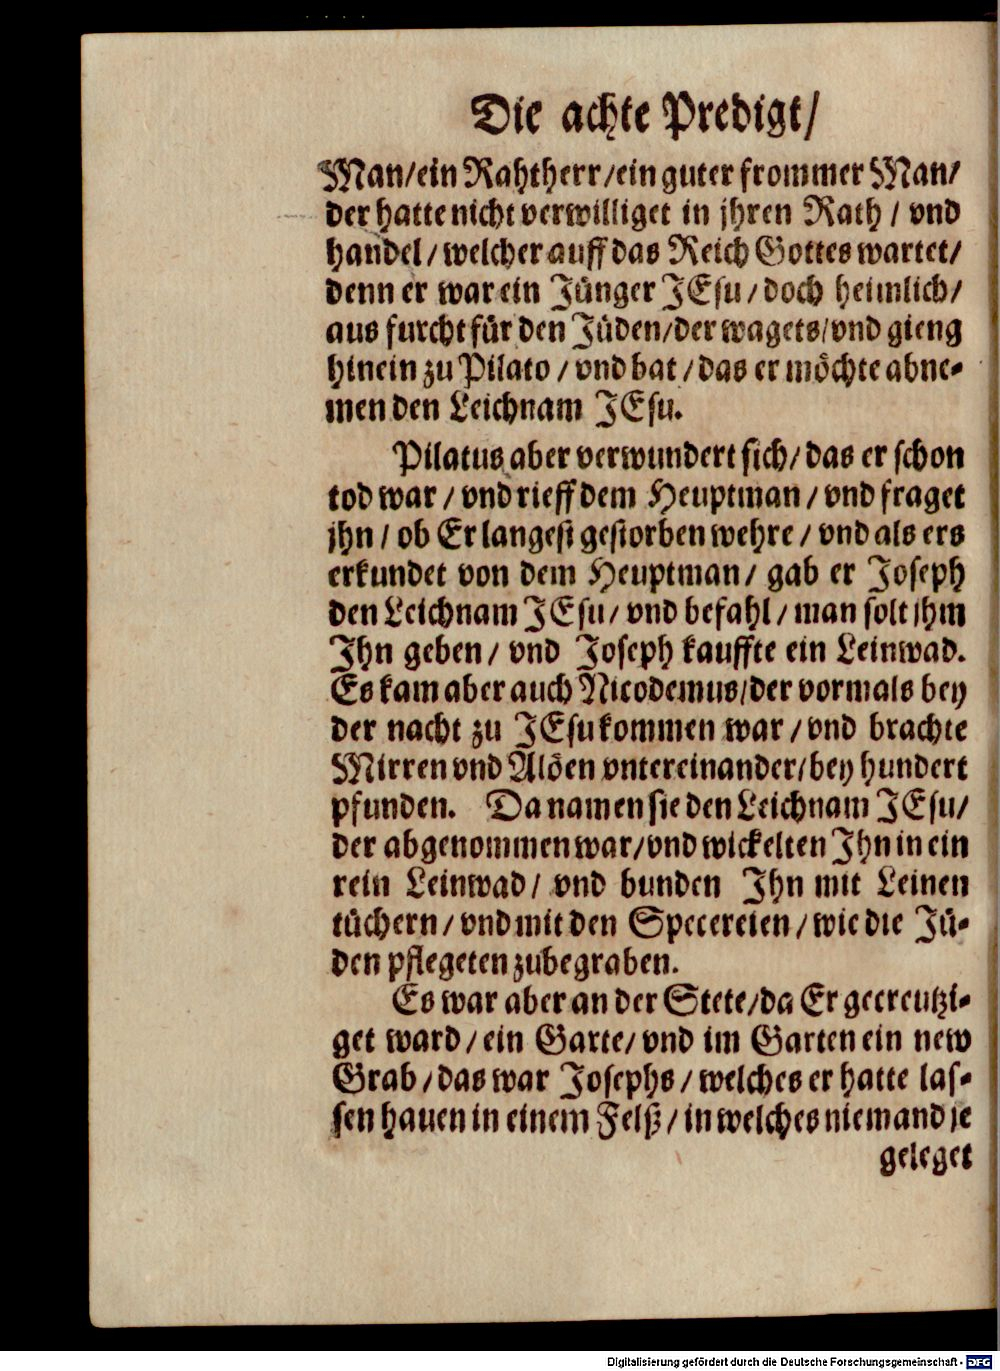 Die achte Predigt/
Man/ein Rahtherr/ein guter frommer Man/
der hatte nicht verwilliget in jhren Rath / vnd
handel / welcher auff das Reich Gottes wartet/
denn er war ein Jünger JEsu / doch heimlich/
aus furcht für den Jüden/der wagets/vnd gieng
hinein zu Pilato / vnd bat / das er möchte abne-
men den Leichnam JEsu.
Pilatus aber verwundert sich/ das er schon
tod war / vnd rieff dem Heuptman / vnd fraget
jhn / ob Er langest gestorben wehre / vnd als ers
erkundet von dem Heuptman/ gab er Joseph
den Leichnam JEsu/ vnd befahl / man solt jhm
Ihn geben / vnd Joseph kauffte ein Leinwad.
Es kam aber auch Nicodemus/der vormals bey
der nacht zu JEsu kommen war / vnd brachte
Mirren vnd Alöen vntereinander/bey hundert
pfunden. Da namen sie den Leichnam JEsu/
der abgenommen war/vnd wickelten Ihn in ein
rein Leinwad/ vnd bunden Ihn mit Leinen
tüchern / vnd mit den Specereien / wie die Jü-
den pflegeten zubegraben.
Es war aber an der Stete/da Er gecreutzi-
get ward / ein Garte/ vnd im Garten ein new
Grab / das war Josephs / welches er hatte las-
sen hauen in einem Felß / in welches niemand je
geleget
Digitalisierung gefördert durch die Deutsche Forschungsgemeinschaft - DFG